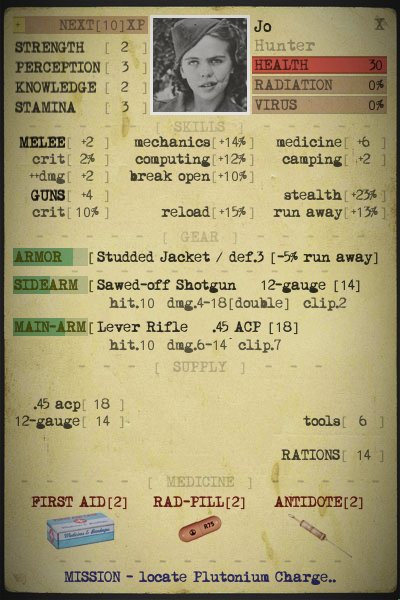 + NEXT[10]XP
Jo
X
Hunter
STRENGTH [ 2 ]
PERCEPTION [ 3 ]
KNOWLEDGE [ 2 ]
STAMINA [ 3 ]
HEALTH 30
RADIATION 0%
VIRUS 0%
- - - - - [ SKILLS ] - - - - -
MELEE[ +2 ] mechanics[+14%] medicine[ +6 ]
crit[ 2% ] computing[+12%] camping[ +2 ]
++dmg[ +2 ] break open[+10%]
GUNS[ +4 ] stealth[+23%]
crit[ 10% ] reload[+15%] run away[+13%]
- - - - - [ GEAR ] - - - - -
ARMOR [Studded Jacket / def.3 [-5% run away]
SIDEARM [Sawed-off Shotgun 12-gauge [14]
hit.10 dmg.4-18[double] clip.2
MAIN-ARM[Lever Rifle .45 ACP [18]
hit.10 dmg.6-14 clip.7
- - - [ SUPPLY ] - - -
.45 acp[ 18 ]
12-gauge[ 14 ] tools[ 6 ]
RATIONS[ 14 ]
- - - - - [ MEDICINE ] - - - - -
FIRST AID[2] RAD-PILL[2] ANTIDOTE[2]
R75
MISSION - locate Plutonium Charge..